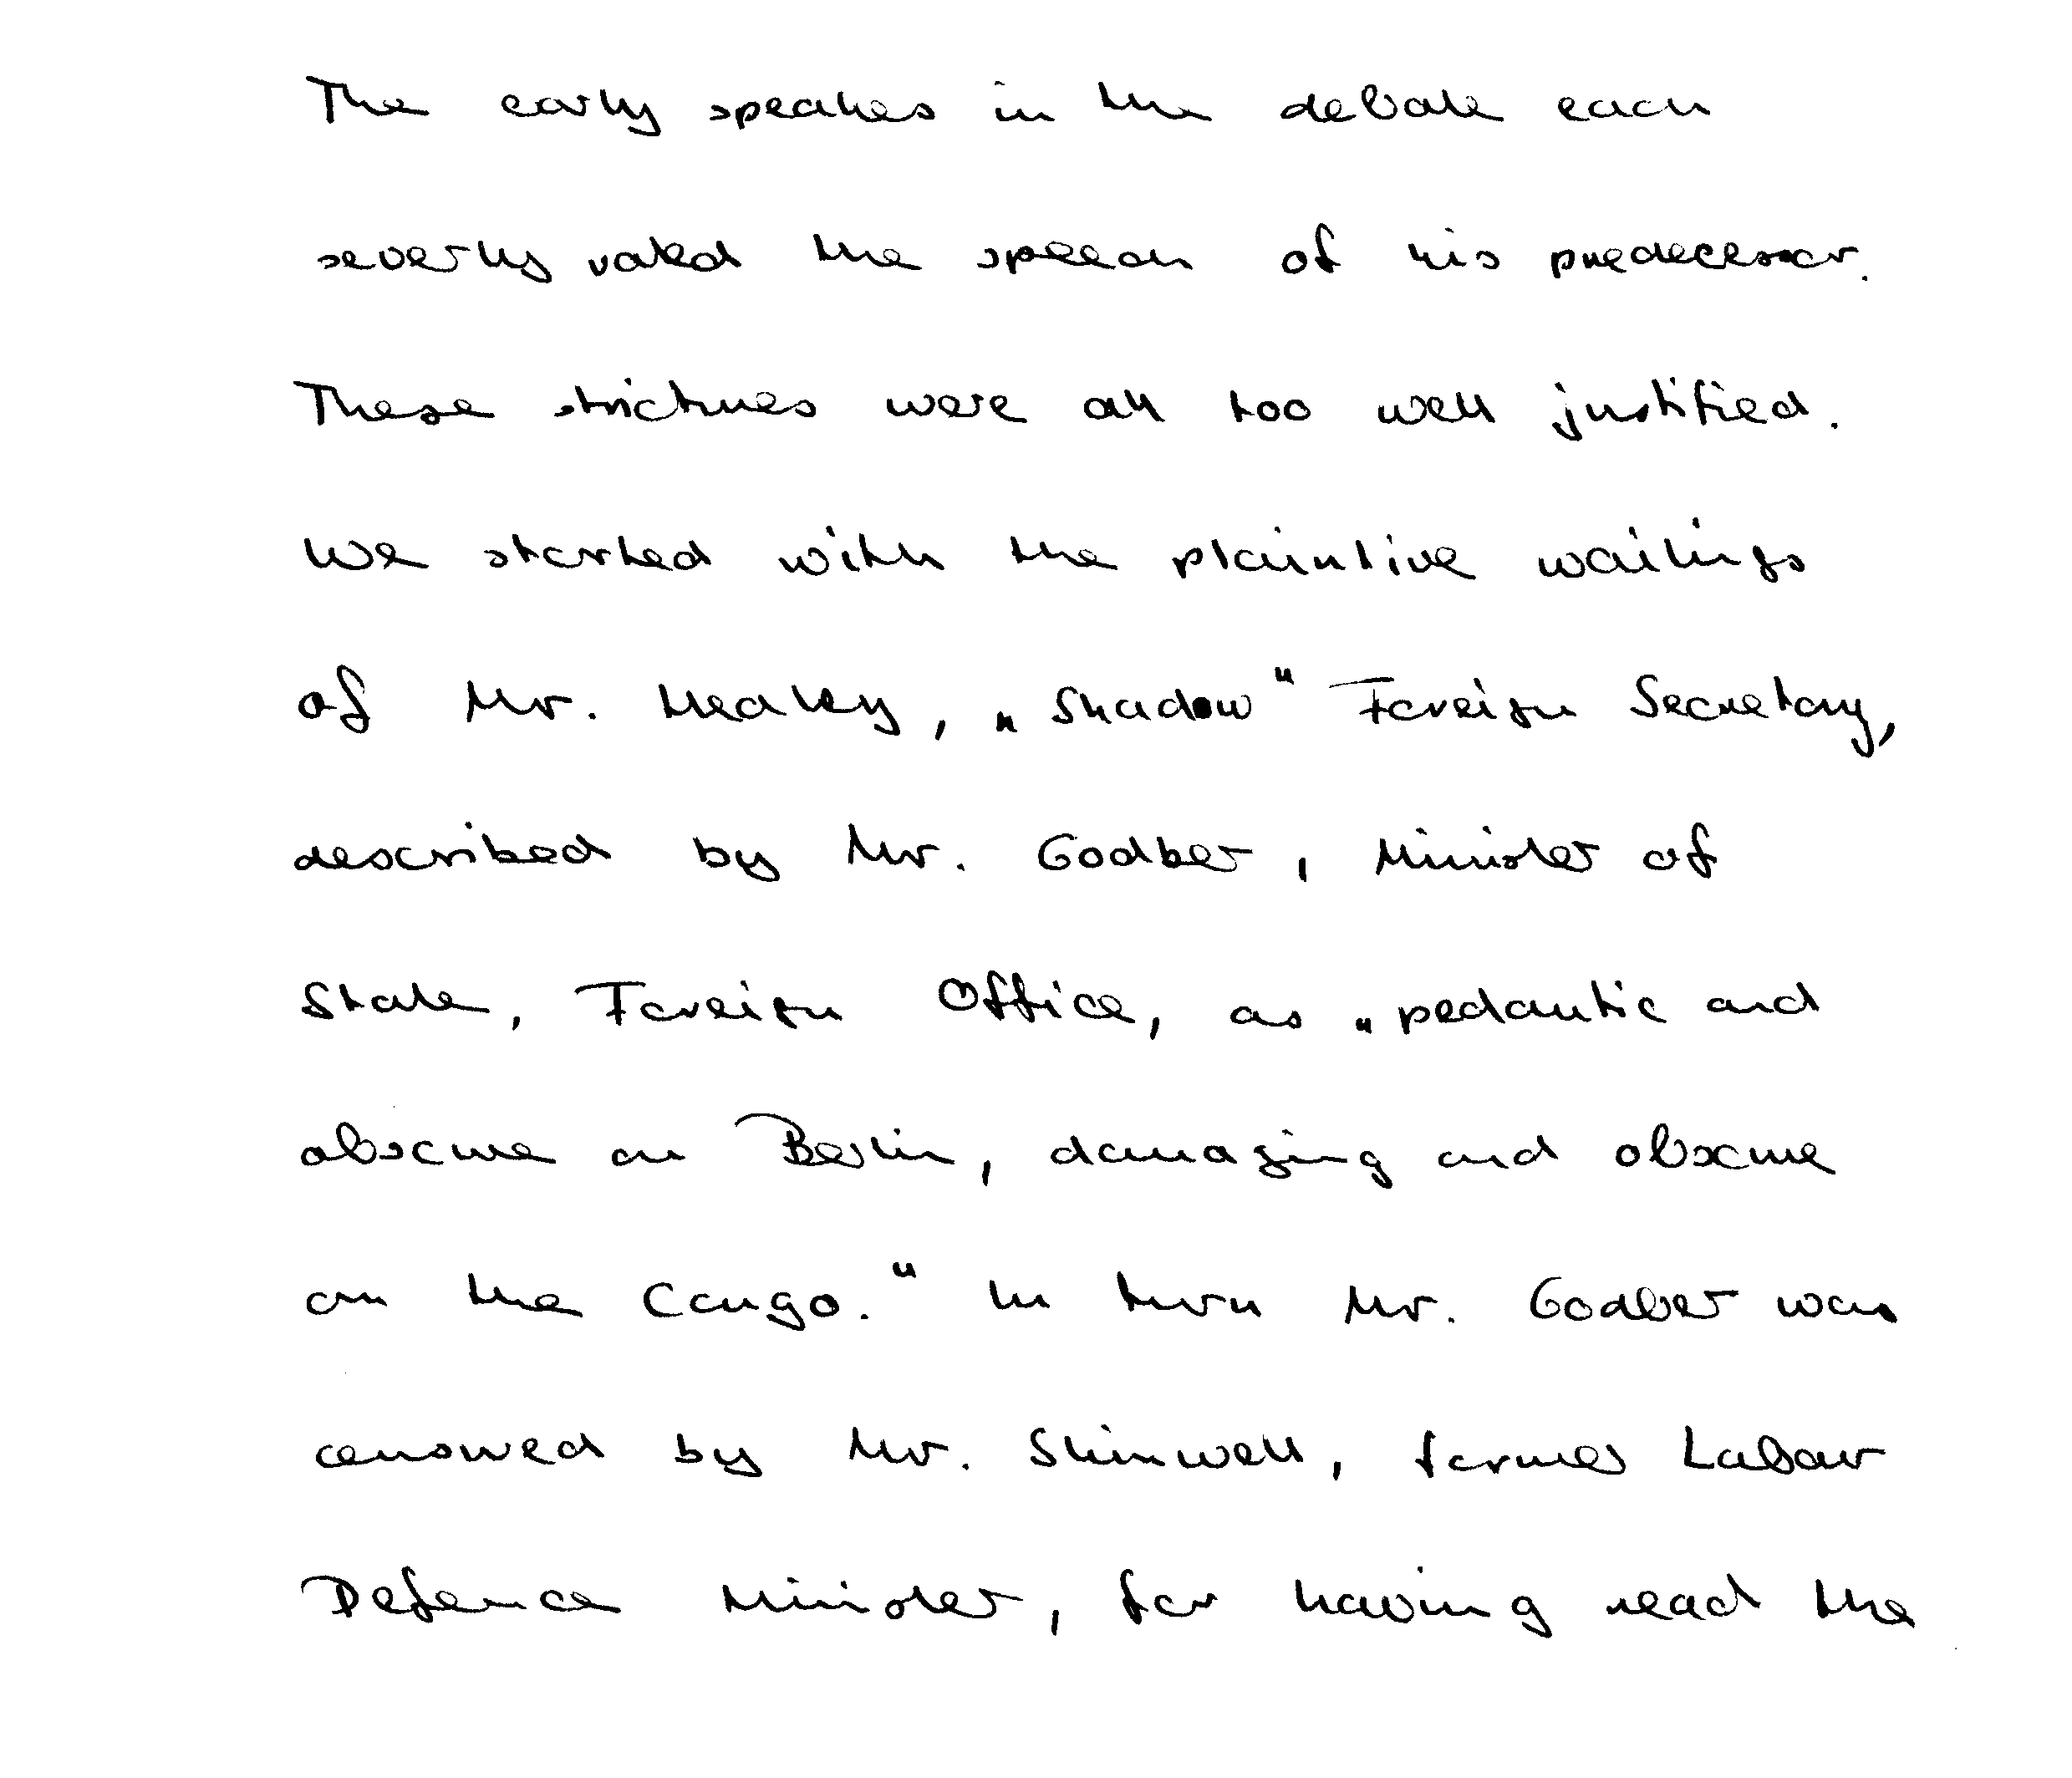 The early speakers in the debate each
severly rated the speech of his predecessor.
These strictures were all too well justified.
We started with the plaintive wailings
of Mr. Healey, „Shadow" Foreign Secretary,
described by Mr. Godber, Minister of
State, Foreign Office, as „pedantic and
obscure on Berlin, damaging and obscure
on the Congo." In turn Mr. Godber was
censored by Mr. Shinwell, former Labour
Defence Minister, for having read the